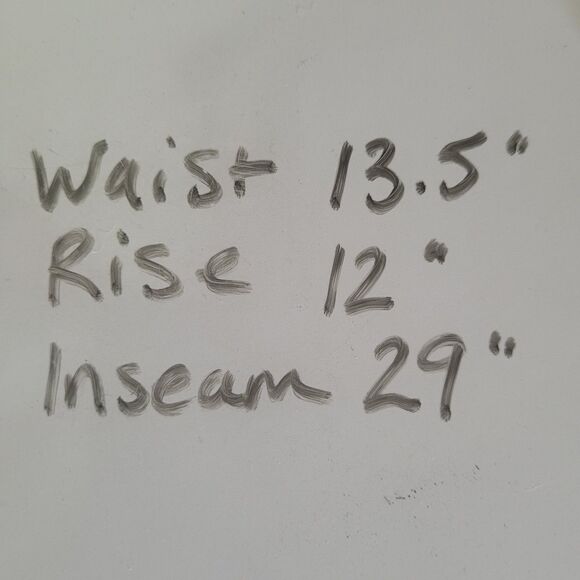 Waist 13.5"
Rise 12"
Inseam 29"